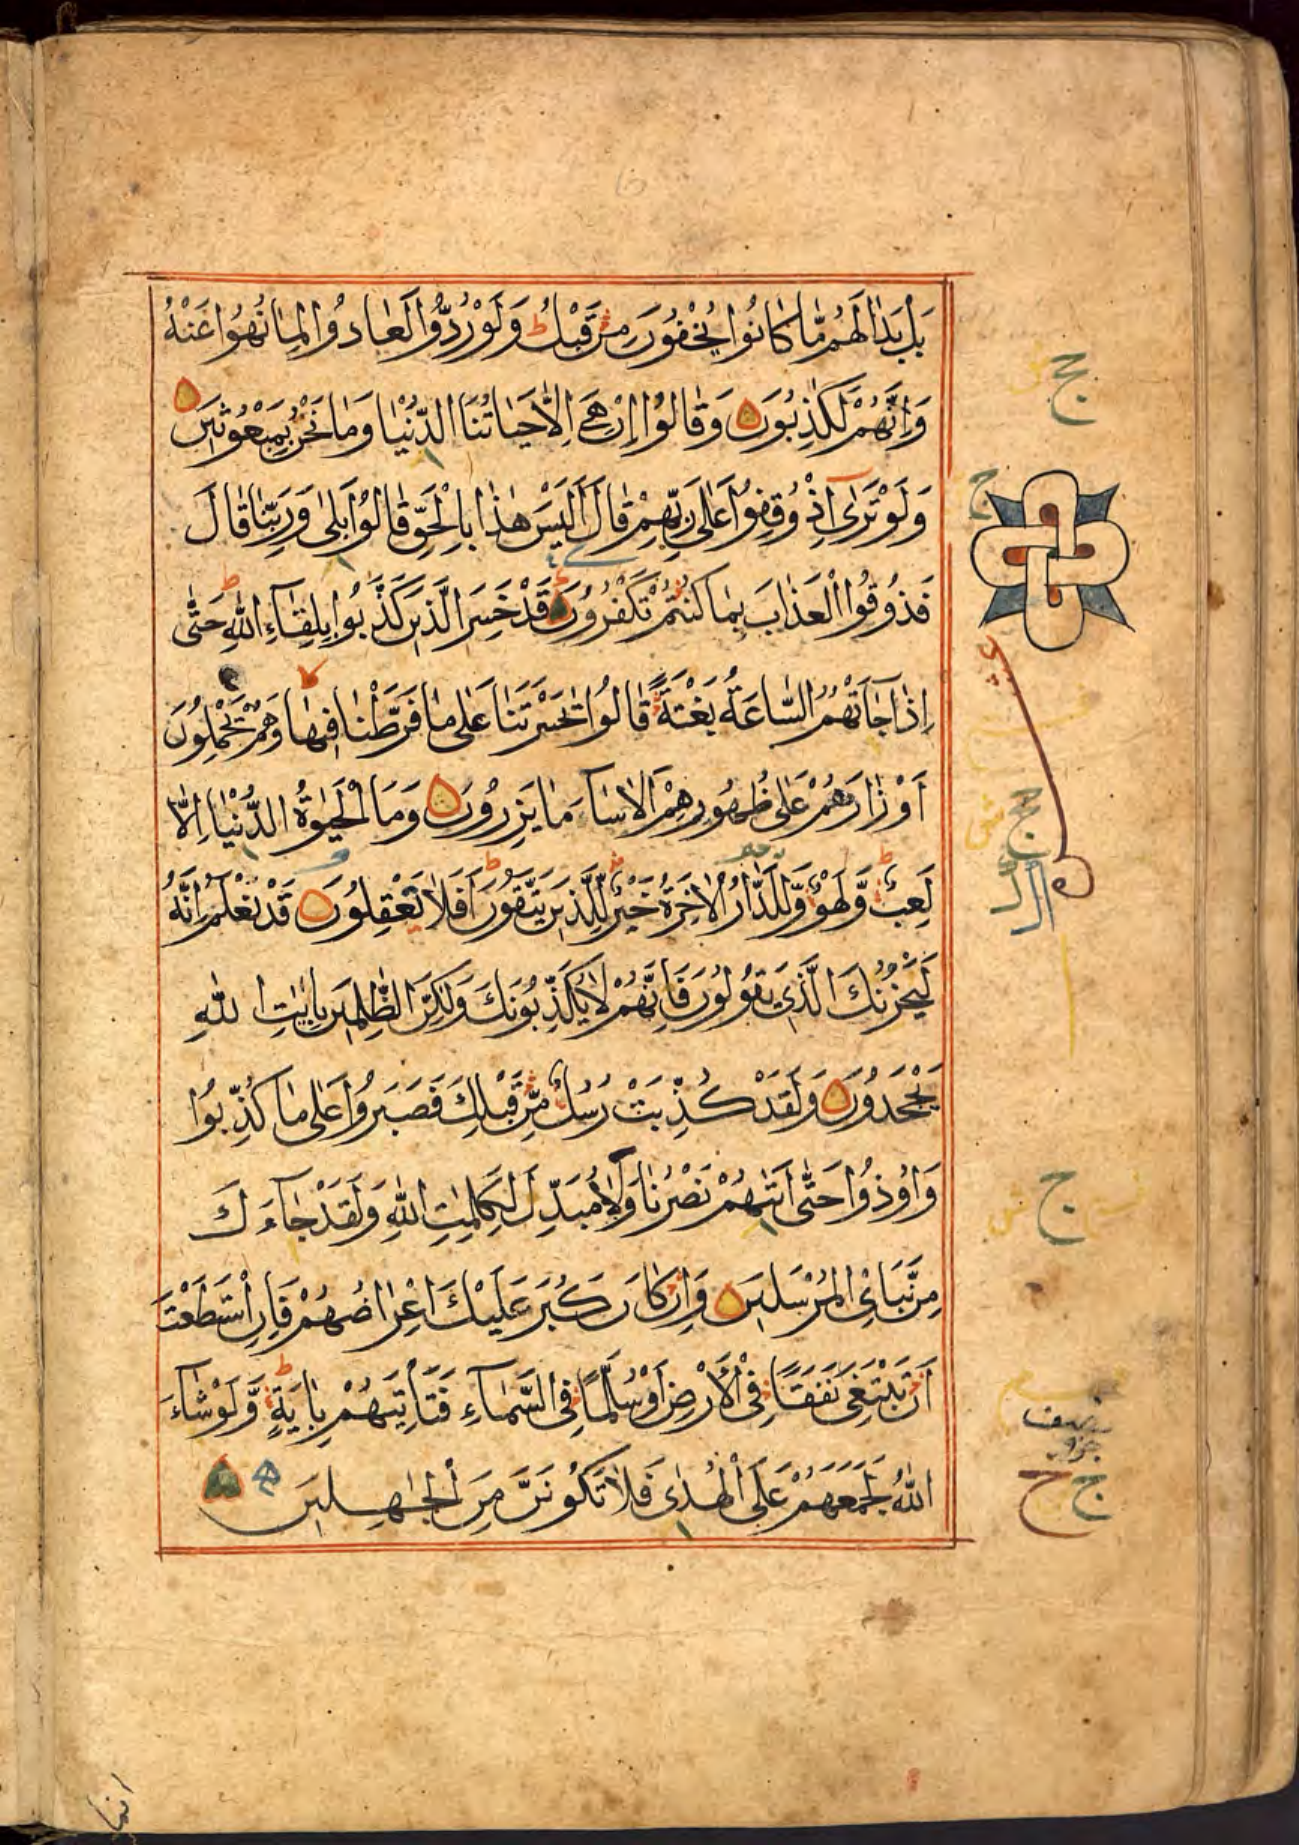 بَلْ بَدَا لَهُمْ مَّا كَانُوا يُخْفُونَ مِنْ قَبْلُ وَلَوْ رُدُّوا لَعَادُوا لِمَا نُهُوا عَنْهُ
وَاِنَّهُمْ لَكٰذِبُونَ وَقَالُوا اِنْ هِيَ اِلَّا حَيَاتُنَا الدُّنْيَا وَمَا نَحْنُ بِمَبْعُوثِينَ
وَلَوْ تَرٰى اِذْ وُقِفُوا عَلٰى رَبِّهِمْ قَالَ اَلَيْسَ هٰذَا بِالْحَقِّ قَالُوا بَلٰى وَرَبِّنَا قَالَ
فَذُوقُوا الْعَذَابَ بِمَا كُنْتُمْ تَكْفُرُونَ قَدْ خَسِرَ الَّذِينَ كَذَّبُوا بِلِقَآءِ اللّٰهِ حَتّٰى
اِذَا جَاَتْهُمُ السَّاعَةُ بَغْتَةً قَالُوا يٰحَسْرَتَنَا عَلٰى مَا فَرَّطْنَا فِيهَا وَهُمْ يَحْمِلُونَ
اَوْزَارَهُمْ عَلٰى ظُهُورِهِمْ اَلَا سَآءَ مَا يَزِرُونَ وَمَا الْحَيٰوةُ الدُّنْيَا اِلَّا
لَعِبٌ وَّلَهْوٌ وَّلَلدَّارُ الْاٰخِرَةُ خَيْرٌ لِّلَّذِينَ يَتَّقُونَ اَفَلَا تَعْقِلُونَ قَدْ نَعْلَمُ اِنَّهُ
لَيَحْزُنُكَ الَّذِي يَقُولُونَ فَاِنَّهُمْ لَا يُكَذِّبُونَكَ وَلٰكِنَّ الظّٰلِمِينَ بِاٰيٰتِ اللّٰهِ
يَجْحَدُونَ وَلَقَدْ كُذِّبَتْ رُسُلٌ مِّنْ قَبْلِكَ فَصَبَرُوا عَلٰى مَا كُذِّبُوا
وَاُوذُوا حَتّٰى اَتٰىهُمْ نَصْرُنَا وَلَا مُبَدِّلَ لِكَلِمٰتِ اللّٰهِ وَلَقَدْ جَآءَكَ
مِنْ نَّبَاِى الْمُرْسَلِينَ وَاِنْ كَانَ كَبُرَ عَلَيْكَ اِعْرَاضُهُمْ فَاِنِ اسْتَطَعْتَ
اَنْ تَبْتَغِيَ نَفَقًا فِي الْاَرْضِ اَوْ سُلَّمًا فِي السَّمَآءِ فَتَأْتِيَهُمْ بِاٰيَةٍ وَّلَوْ شَآءَ
اللّٰهُ لَجَمَعَهُمْ عَلَى الْهُدٰى فَلَا تَكُونَنَّ مِنَ الْجٰهِلِينَ
انما